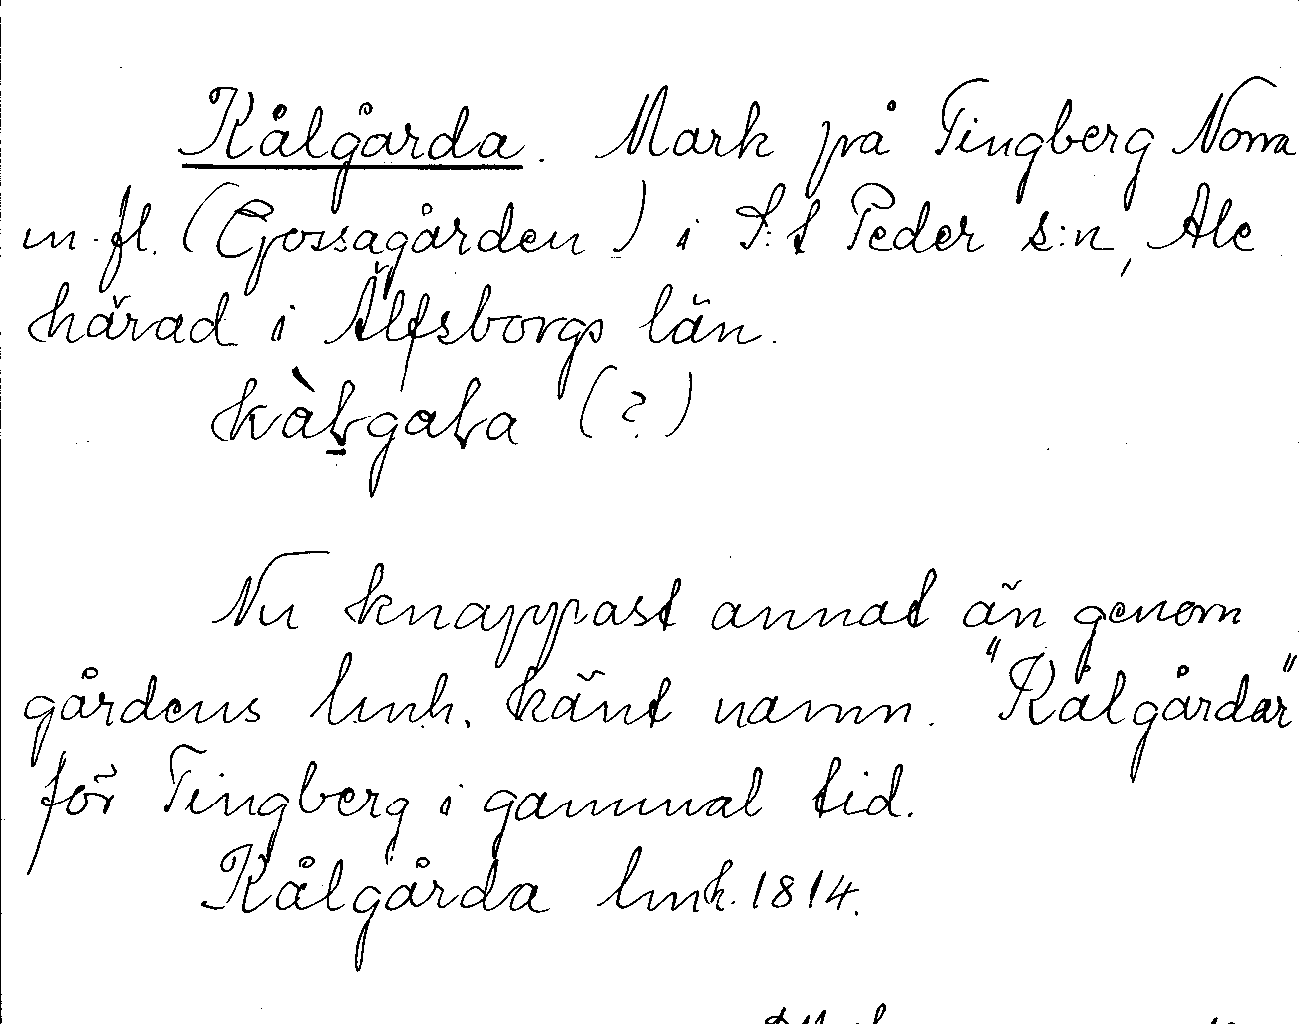 Kålgårda. Mark på Tingberg Norra
m.fl. (Gossagården) i S:t Peder s:n, Ale
härad i Älfsborgs län.
(?)
Nu knappast annat än genom
gårdens lmk. känt namn. "Kålgårdar"
för Tingberg i gammal tid.
Kålgårda lmk. 1814.